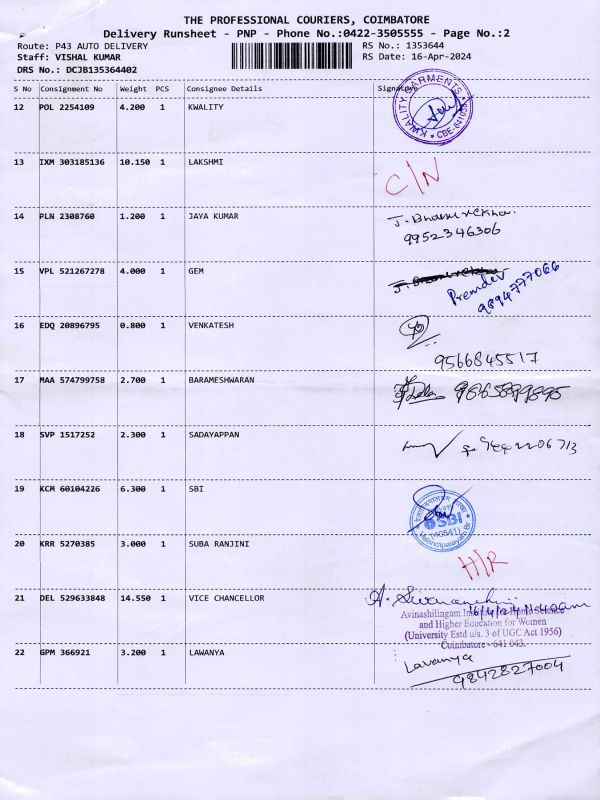 THE PROFESSIONAL COURIERS, COIMBATORE
Delivery Runsheet - PNP - Phone No.:0422-3505555 - Page No.:2
Route: P43 AUTO DELIVERY RS No.: 1353644
Staff: VISHAL KUMAR RS Date: 16-Apr-2024
DRS No.: DCJB135364402
S No Consignment No Weight PCS Consignee Details Signature
12 POL 2254109 4.200 1 KWALITY
KWALITY GARMENTS
13 IXM 303185136 10.150 1 LAKSHMI
C/N
14 PLN 2308760 1.200 1 JAYA KUMAR J. Bhanurekha.
9952346306
15 VPL 521267278 4.000 1 GEM
Premdev
9894777066
16 EDQ 20896795 0.800 1 VENKATESH
9566845517
17 MAA 574799758 2.700 1 BARAMESHWARAN
18 SVP 1517252 2.300 1 SADAYAPPAN
19 KCM 60104226 6.300 1 SBI
SBI
(40541)
20 KRR 5270385 3.000 1 SUBA RANJINI
H/R
21 DEL 529633848 14.550 1 VICE CHANCELLOR
Avinashilingam Institute for Home Science
and Higher Education for Women
(University Estd u/s. 3 of UGC Act 1956)
Coimbatore - 641 043.
22 GPM 366921 3.200 1 LAWANYA Lavanya
9842827004